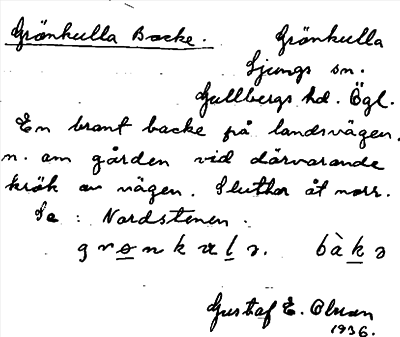 Grönkulla Backe. Grönkulla
Ljungs sn.
Gullbergs hd. Ögl.
En brant backe på landsvägen.
n. om gården vid därvarande
krök av vägen. Sluttar åt norr.
Se : Nordstenen.
bàkə
Gustaf E. Olsson
1936.